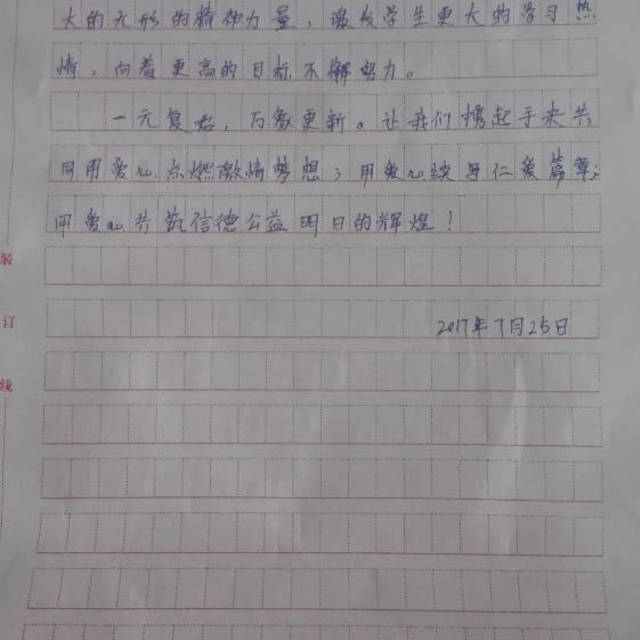 大的无形的精神力量，激发学生更大的学习热
情，向着更高的目标不懈努力。
一元复始，万象更新。让我们携起手来共
同用爱心点燃激情梦想；用爱心续写仁爱篇章；
用爱心共筑信德公益明日的辉煌！
装
2017年7月25日
订
线